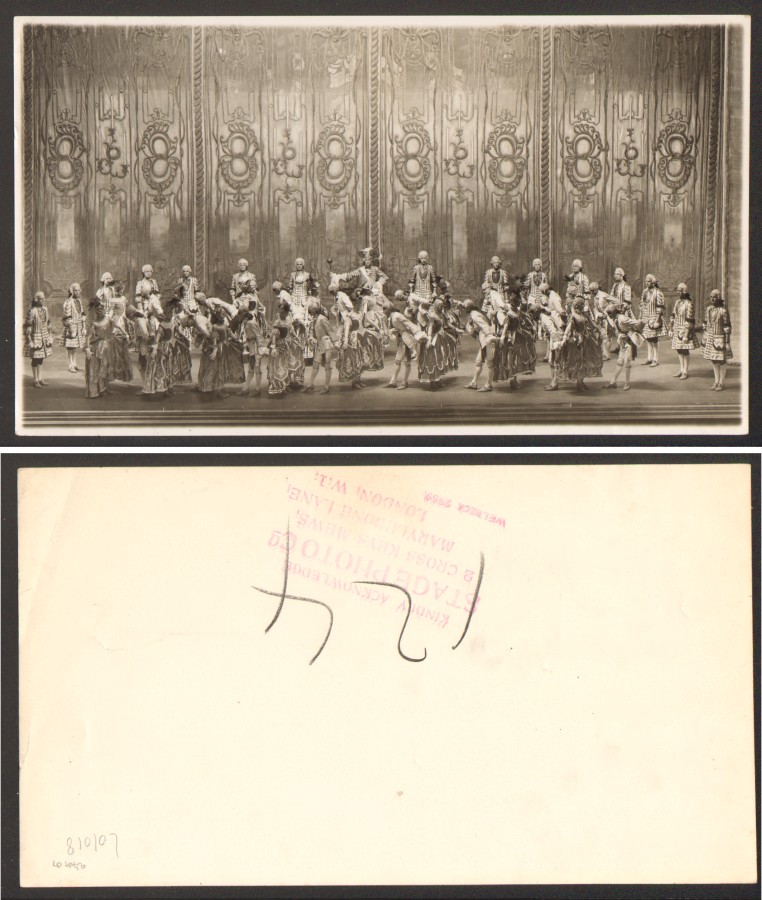 KINDLY ACKNOWLEDGE
STAGE PHOTO Co
2 CROSS KEYS MEWS,
MARYLEBONE LANE,
LONDON, W.1.
WELBECK
124
810107